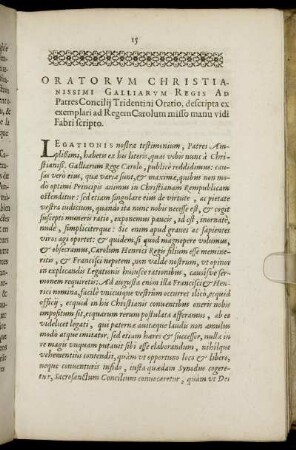 15
ORATORVM CHRISTIA-
NISSIMI GALLIARVM REGIS AD
Patres Concilij Tridentini Oratio, descripta ex
exemplari ad Regem Carolum misso manu vidi
Fabri scripto.
LEGATIONIS nostræ testimonium, Patres Am-
plissimi, habetur ex his literis, quas vobis nunc à Chri-
stianiss. Galliarum Rege Carolo, publicè reddidimus: con-
suli verò eius, quæ variæ sunt, & maximæ, quibus non mo-
dò optimi Principis animus in Christianam Rempublicam
ostenditur: sed etiam singulare eius de virtute, ac pietate
vestra iudicium, quando ita nunc nobis necesse est, & cogit
suscepti muneris ratio, exponemus paucis, id est, inornatè,
nude, simpliciterque: Sic enim apud graues ac sapientes
viros agi oportet: & quidem, si quid magnopere volumus,
& obsecramus, Carolum Henrici Regis filium esse memine-
ritis, & Francisci nepotem, non valde nostrum, vt opinor
in explicandis Legationis huiusce rationibus, causisve ser-
monem requiretis: Ad augusta enim illa Francisci & Hen-
rici nomina, facilè vnicuique vestrûm occurret illico, ecquid
officij, ecquid in his Christianæ conuentibus oneris nobis
impositum sit, ecquarum rerum postulata afferamus, ab eo
videlicet legati, qui paternæ auitæque laudis non æmulus
modò atque imitator, sed etiam hæres & successor, nulla in
re magis vnquam putauit sibi esse elaborandum, nihilque
vehementius contendit, quàm vt opportuno loco & libero,
neque conuenturis infido, iusta quædam Synodus cogere-
tur, Sacrosanctum Concilium conuocaretur, quàm vt Dei